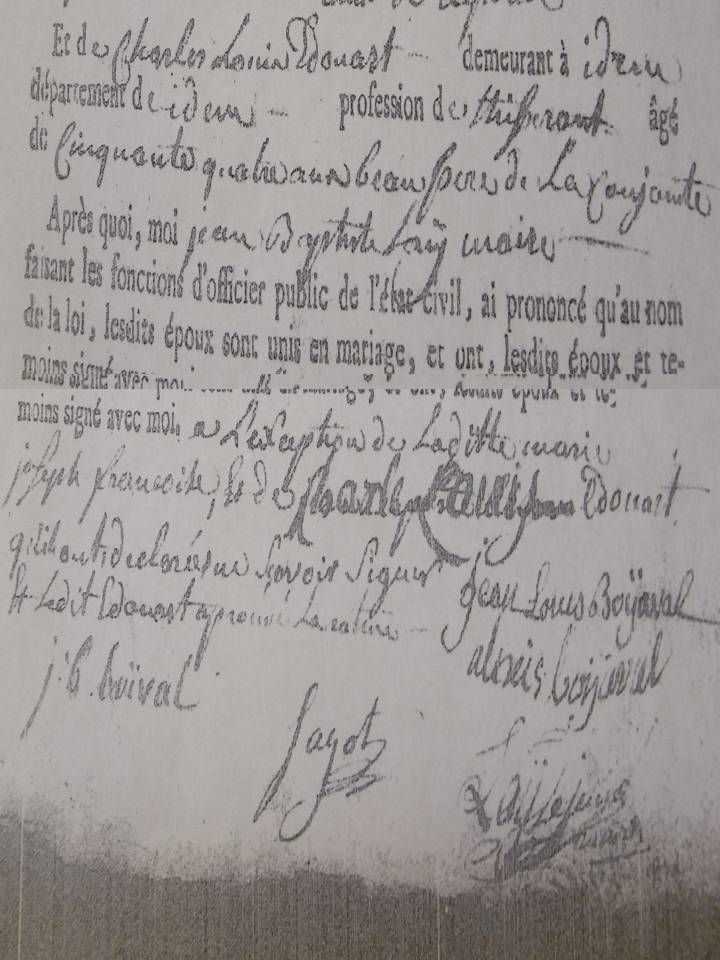 Et de Charles Louis Edouart — demeurant à idem
département de idem — profession de thisserant âgé
de Cinquante quatre ans beau pere de La Conjointe
Après quoi, moi jean Baptiste Laÿ maire —
faisant les fonctions d'officier public de l'état civil, ai prononcé qu'au nom
de la loi, lesdits époux sont unis en mariage, et ont, lesdits époux et té-
moins signé avec moi
moins signé avec moi, a L'exception de Laditte marie
joseph francoise, Et de Edouart
qui ont declarés ne Scavoir Signer
Et Ledit Edouart aprouvé La rature —
jean Louis Boÿaval
alexis bojaval
j. b. boïval
fayot
Laÿ lejeune